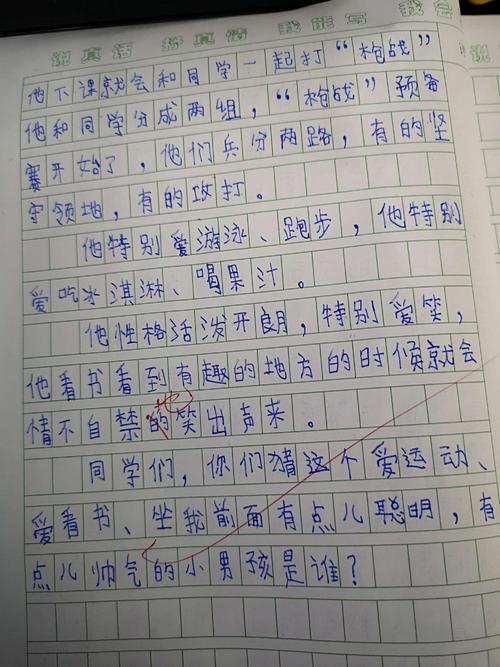 说真话 抒真情 我能写 我会
他下课就会和同学一起打“枪战”
他和同学分成两组，“枪战”预备
赛开始了，他们兵分两路，有的坚
守领地，有的攻打。
他特别爱游泳、跑步，他特别
爱吃冰淇淋、喝果汁。
他性格活泼开朗，特别爱笑，
他看书看到有趣的地方的时候就会
情不自禁的笑出声来。
地
同学们，你们猜这个爱运动、
爱看书、坐我前面有点儿聪明，有
点儿帅气的小男孩是谁？
说